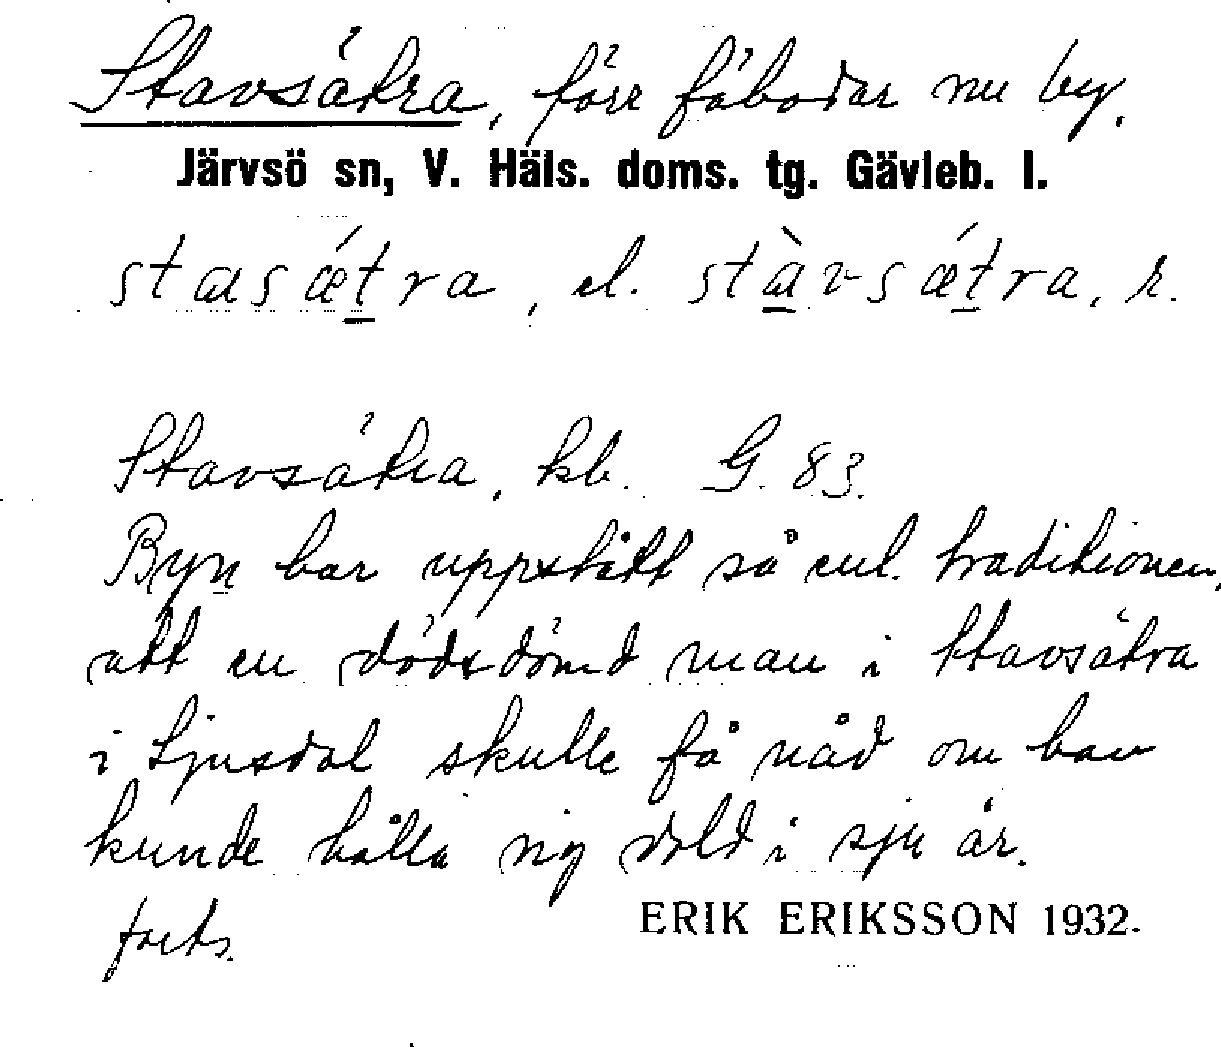 Stavsätra, förr fäbodar nu by.
Järvsö sn, V. Häls. doms. tg. Gävleb. l.
stasǽtra, el. stàvsǽtra, r.
Stavsätra, kb. G. 83.
Byn har uppstått så enl. traditionen,
att en dödsdömd man i Stavsätra
i Ljusdal skulle få nåd om han
kunde hålla sig dold i sju år.
forts.
ERIK ERIKSSON 1932.